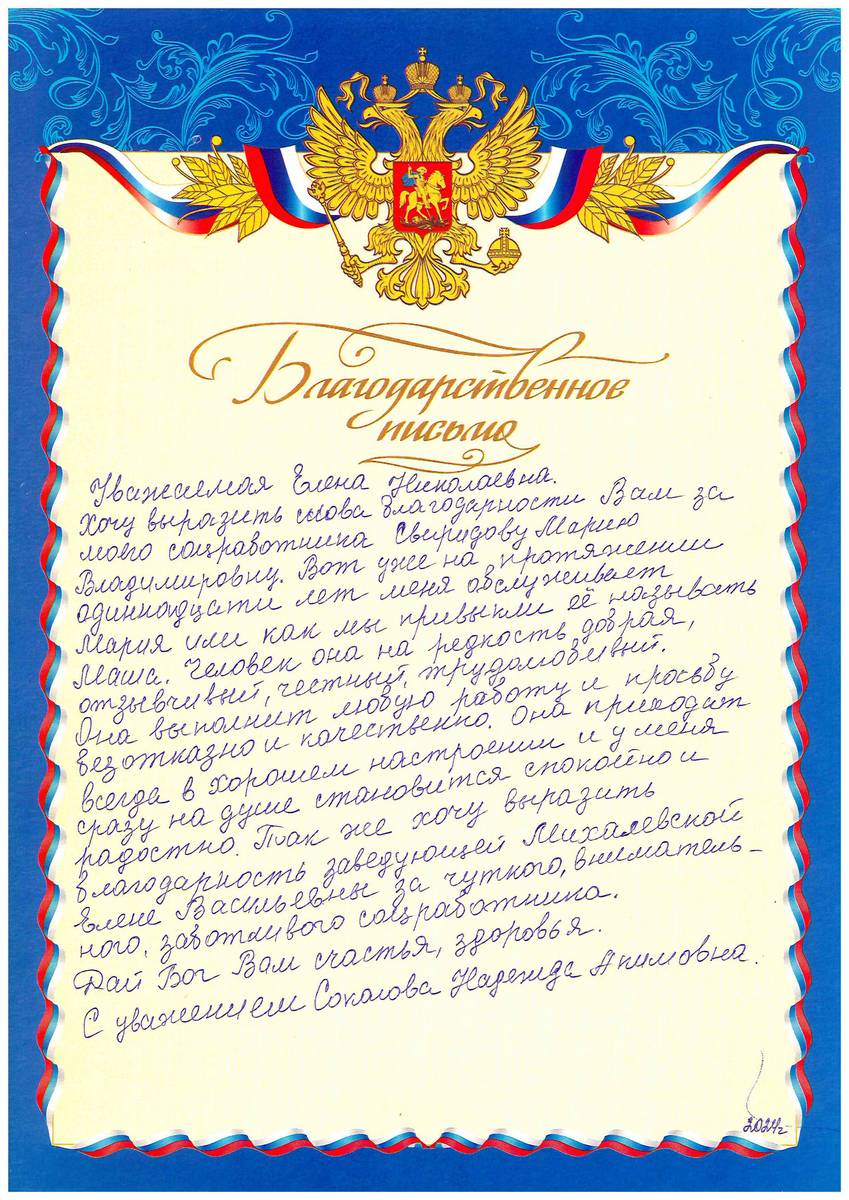 Благодарственное
письмо
Уважаемая Елена Николаевна.
Хочу выразить слова благодарности Вам за
моего соцработника Свиридову Марию
Владимировну. Вот уже на протяжении
одиннадцати лет меня обслуживает
Мария или как мы привыкли её называть
Маша. Человек она на редкость добрая,
отзывчивый, честный, трудолюбивый.
Она выполнит любую работу и просьбу
безотказно и качественно. Она приходит
всегда в хорошем настроении и у меня
сразу на душе становится спокойно и
радостно. Так же хочу выразить
благодарность заведующей Михалевской
Елене Васильевны за чуткого, вниматель-
ного, заботливого соцработника.
Дай Бог Вам счастья, здоровья.
С уважением Соколова Надежда Акимовна.
2024г